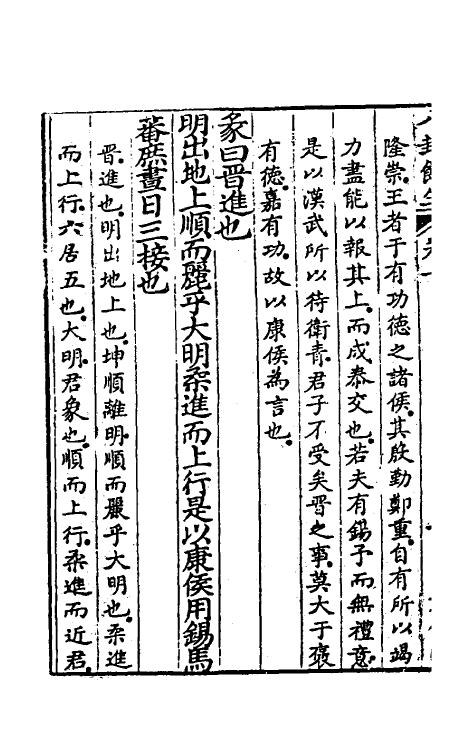 隆崇王者于有功德之諸侯其殷勤鄭重自有所以竭
力盡能以報其上而成泰交也若夫有錫予而無禮意
是以漢武所以待衛青君子不受矣晉之事莫大于褒
有德嘉有功故以康侯為言也
彖曰晉進也
明出地上順而麗乎大明柔進而上行是以康侯用錫馬
蕃庶晝日三接也
晉進也明出地上也坤順離明順而麗乎大明也柔進
而上行六居五也大明君象也順而上行柔進而近君